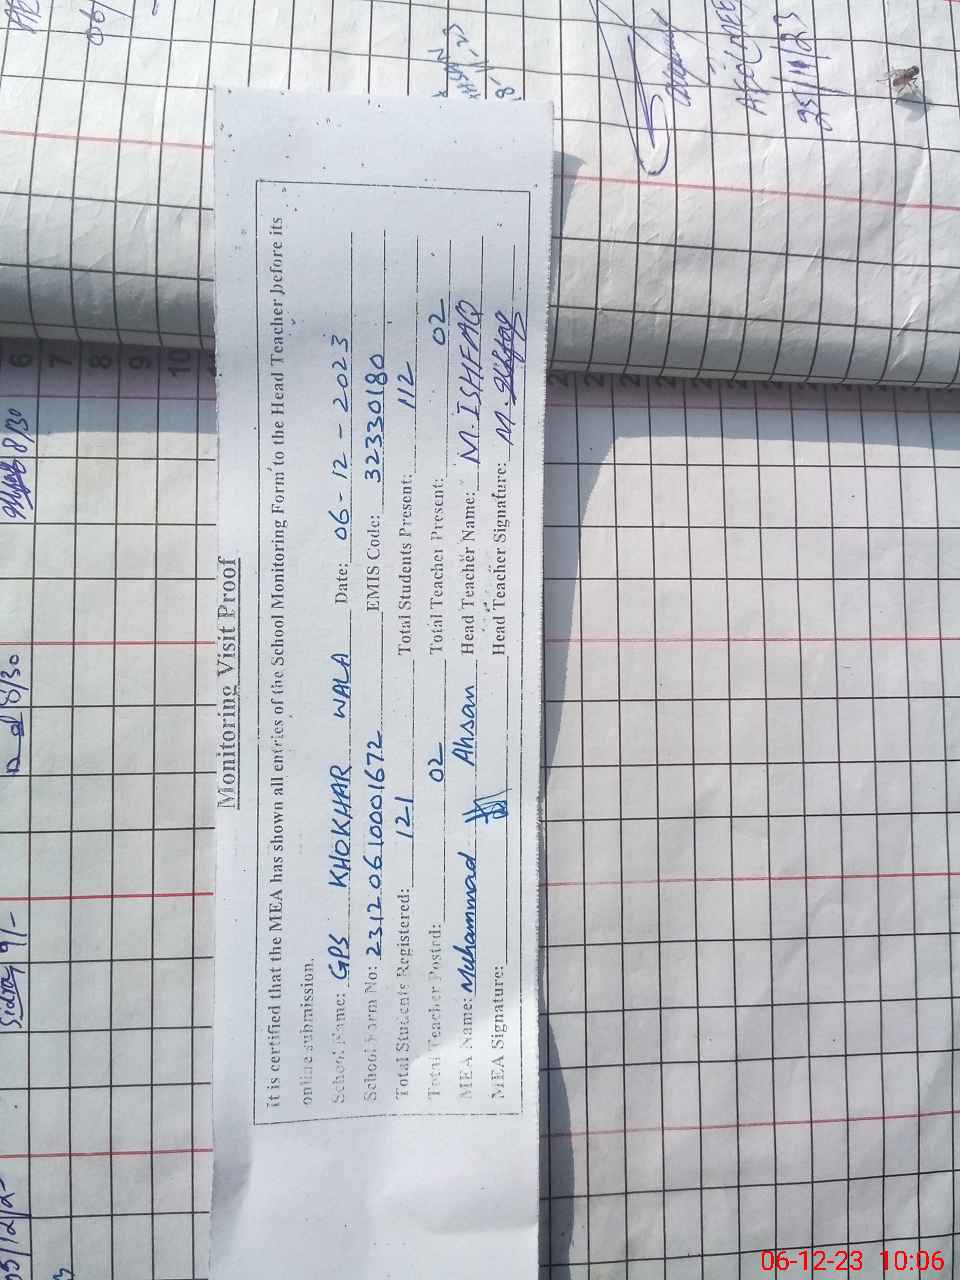 Monitoring Visit Proof
it is certified that the MEA has shown all entries of the School Monitoring Form to the Head Teacher before its
online submission.
School Name: GPS KHOKHAR WALA Date: 06-12-2023
School Form No: 231206100001672 EMIS Code: 32330180
Total Students Registered: 121 Total Students Present: 112
Total Teacher Posted: 02 Total Teacher Present: 02
MEA Name: Muhammad Ahsan Head Teacher Name: M.ISHFAQ
MEA Signature: Head Teacher Signature: M.
6
7
8
9
10
8/30
8/30
Sidra 9/-
25/11/23
06-12-23 10:06